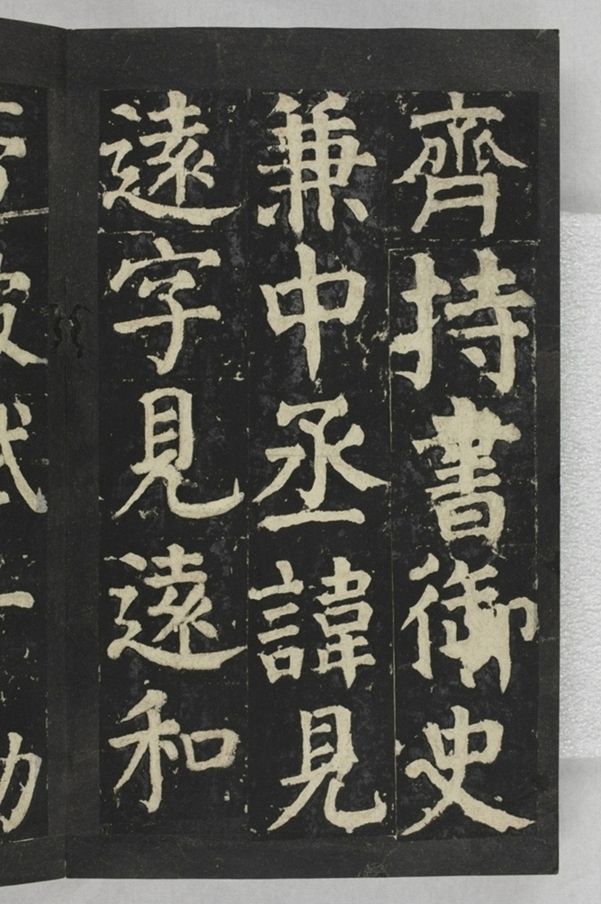 齊持書御史
兼中丞諱見
遠字見遠和